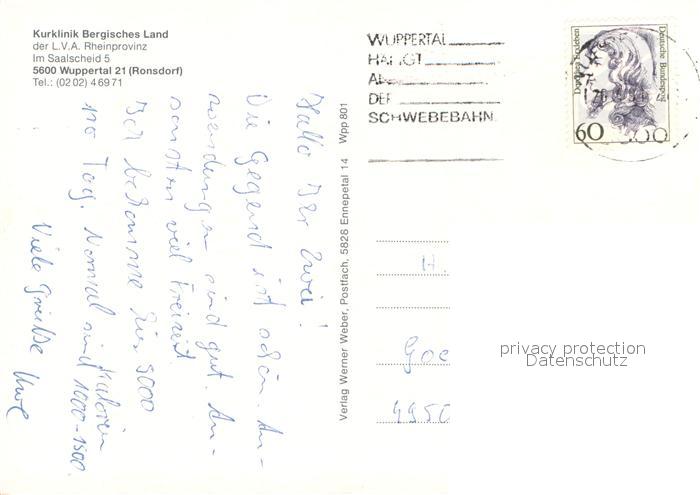 Kurklinik Bergisches Land
der L.V.A. Rheinprovinz
Im Saalscheid 5
5600 Wuppertal 21 (Ronsdorf)
Tel.: (02 02) 4 69 71
Hallo Ihr Zwei!
Die Gegend ist schön. An-
wendungen sind gut. An-
sonsten viel Freizeit.
Ich bekomme hier 9000
Kalorien
pro Tag. Normal sind 1000-1500
Viele Grüße Uwe
Verlag Werner Weber, Postfach, 5828 Ennepetal 14 Wpp 801
WUPPERTAL
HÄNGT
AN
DER
SCHWEBEBAHN
Dorothea Erxleben
Deutsche Bundespost
60
H.
Goe
4950
privacy protection
Datenschutz